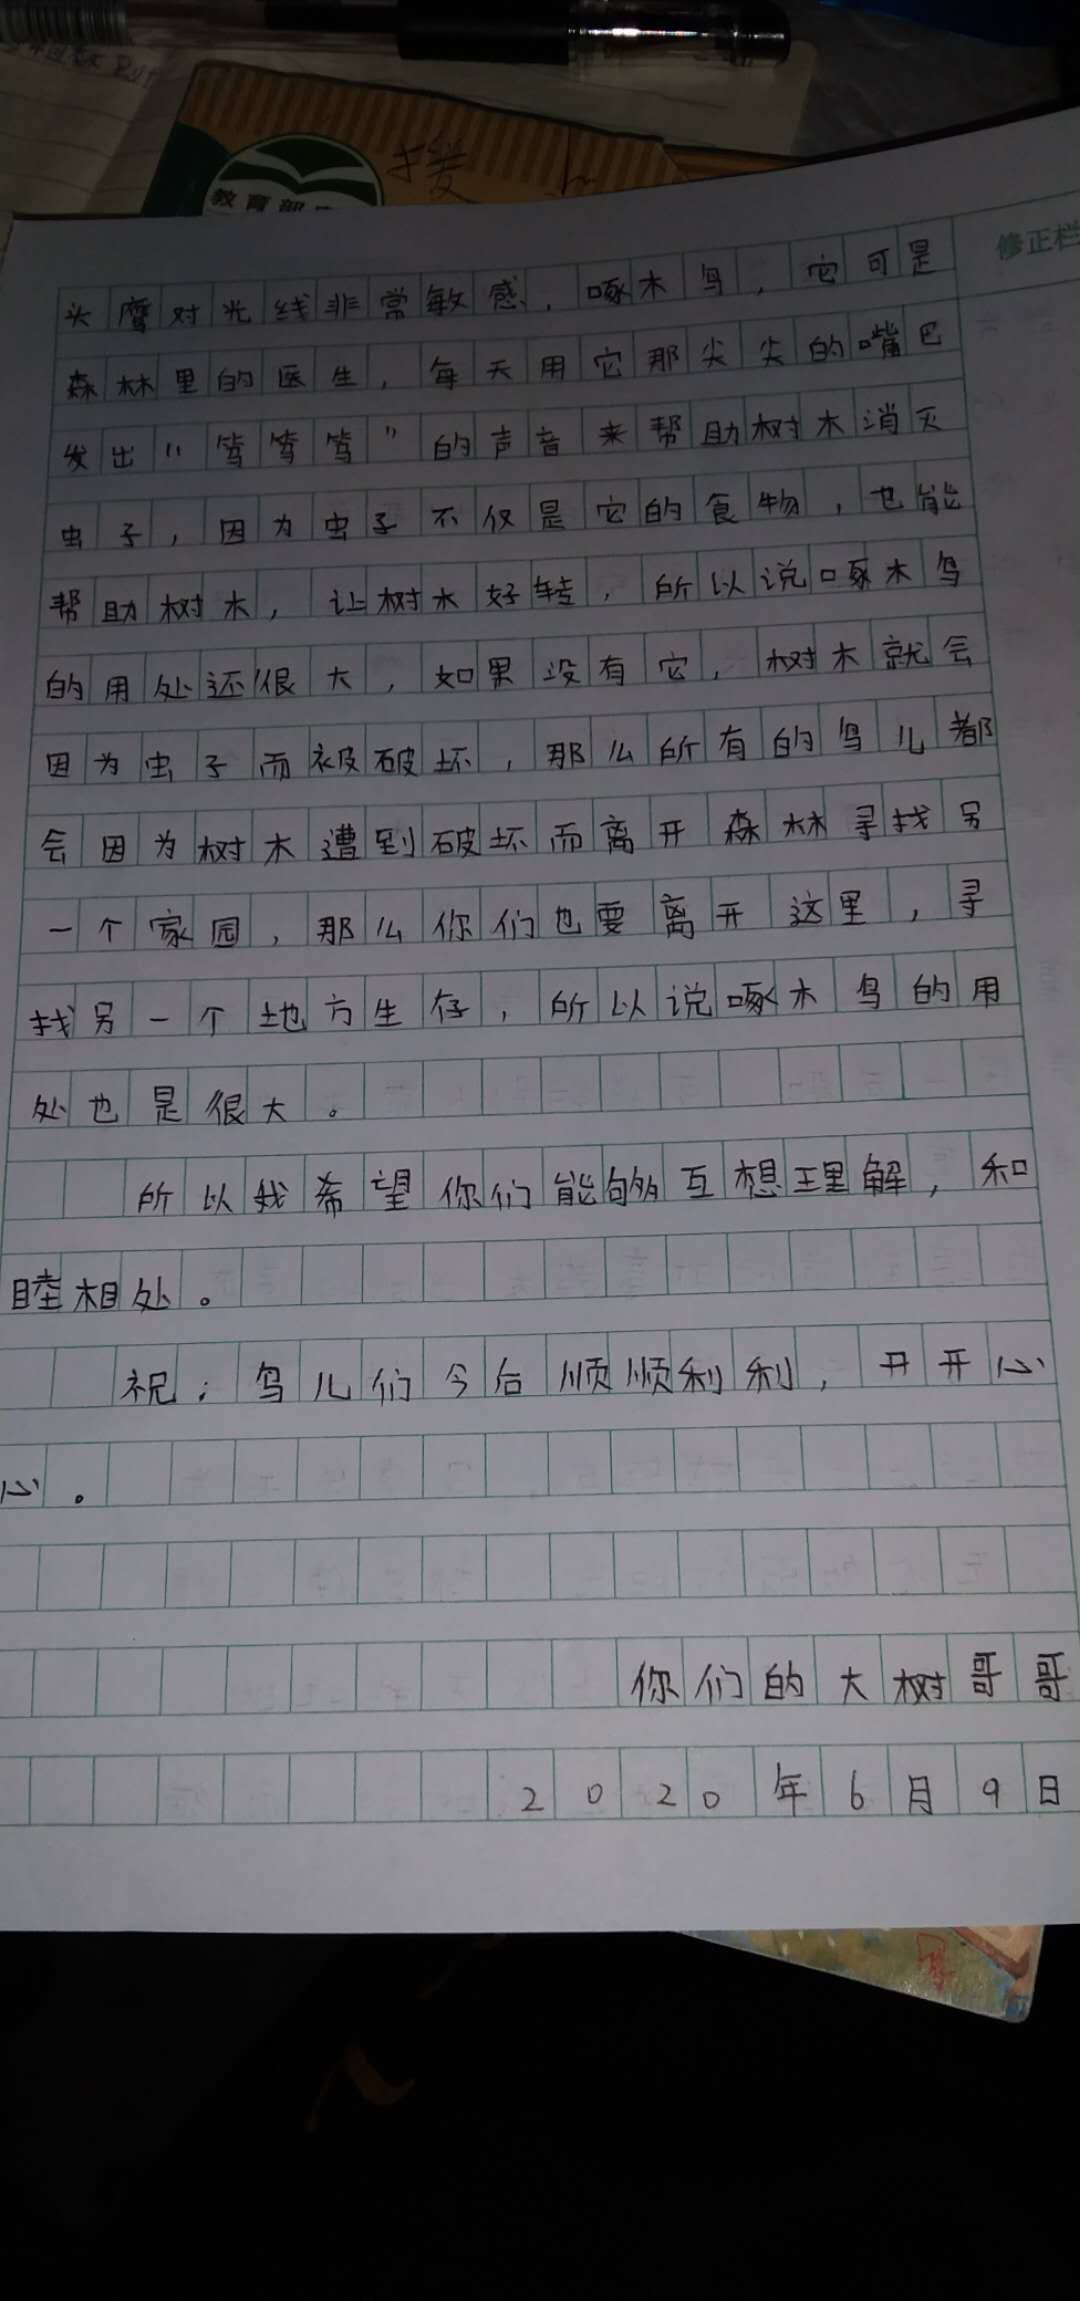 教育部
修正栏
头鹰对光线非常敏感,啄木鸟,它可是
森林里的医生,每天用它那尖尖的嘴巴
发出"笃笃笃"的声音来帮助树木消灭
虫子,因为虫子不仅是它的食物,也能
帮助树木,让树木好转,所以说啄木鸟
的用处还很大,如果没有它,树木就会
因为虫子而被破坏,那么所有的鸟儿都
会因为树木遭到破坏而离开森林寻找另
一个家园,那么你们也要离开这里,寻
找另一个地方生存,所以说啄木鸟的用
处也是很大。
所以我希望你们能够互想理解,和
睦相处。
祝:鸟儿们今后顺顺利利,开开心
心。
你们的大树哥哥
2020年6月9日